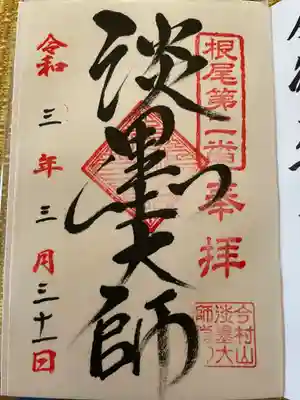 根尾第一番
奉拝
淡墨大師
今村山
淡墨大
令和三年三月三十一日